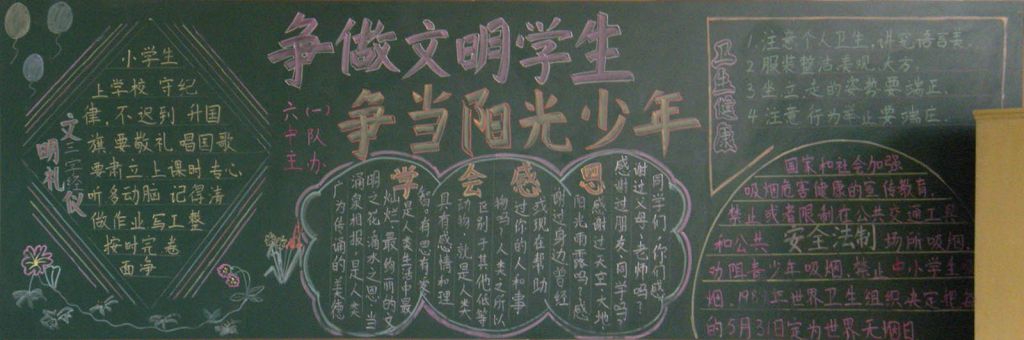 争做文明学生
争当阳光少年
六(一)
中队
主办
文明礼仪
小学生
上学校 守纪
律,不迟到 升国
旗 要敬礼 唱国歌
要肃立 上课时 专心
听 多动脑 记得清
做作业 写工整
按时完卷
面净
学会感恩
同学们,你们感
谢过父母、老师吗?
感谢过朋友、同学吗?
感谢过天空、大地、
阳光雨露吗?感
谢过身边曾经
或现在帮助
过你的人和事
物吗?人类之所以
区别于其他低等
动物,就是人类
具有感情和理
智。有恩有爱
是人类生活中最
灿烂、最绚丽的文
明之花,滴水之恩,当
涌泉相报,是人类
广为传诵的美德
卫生健康
1.注意个人卫生,讲究语言美.
2 服装整洁 表现 大方.
3 坐立走的姿势要端正.
4 注意 行为举止要端庄.
安全法制
国家和社会加强
吸烟危害健康的宣传教育.
禁止或者限制在公共交通工具
和公共 场所吸烟,
劝阻青少年吸烟,禁止中小学生
烟.1987年世界卫生组织决定把
的5月31日定为世界无烟日